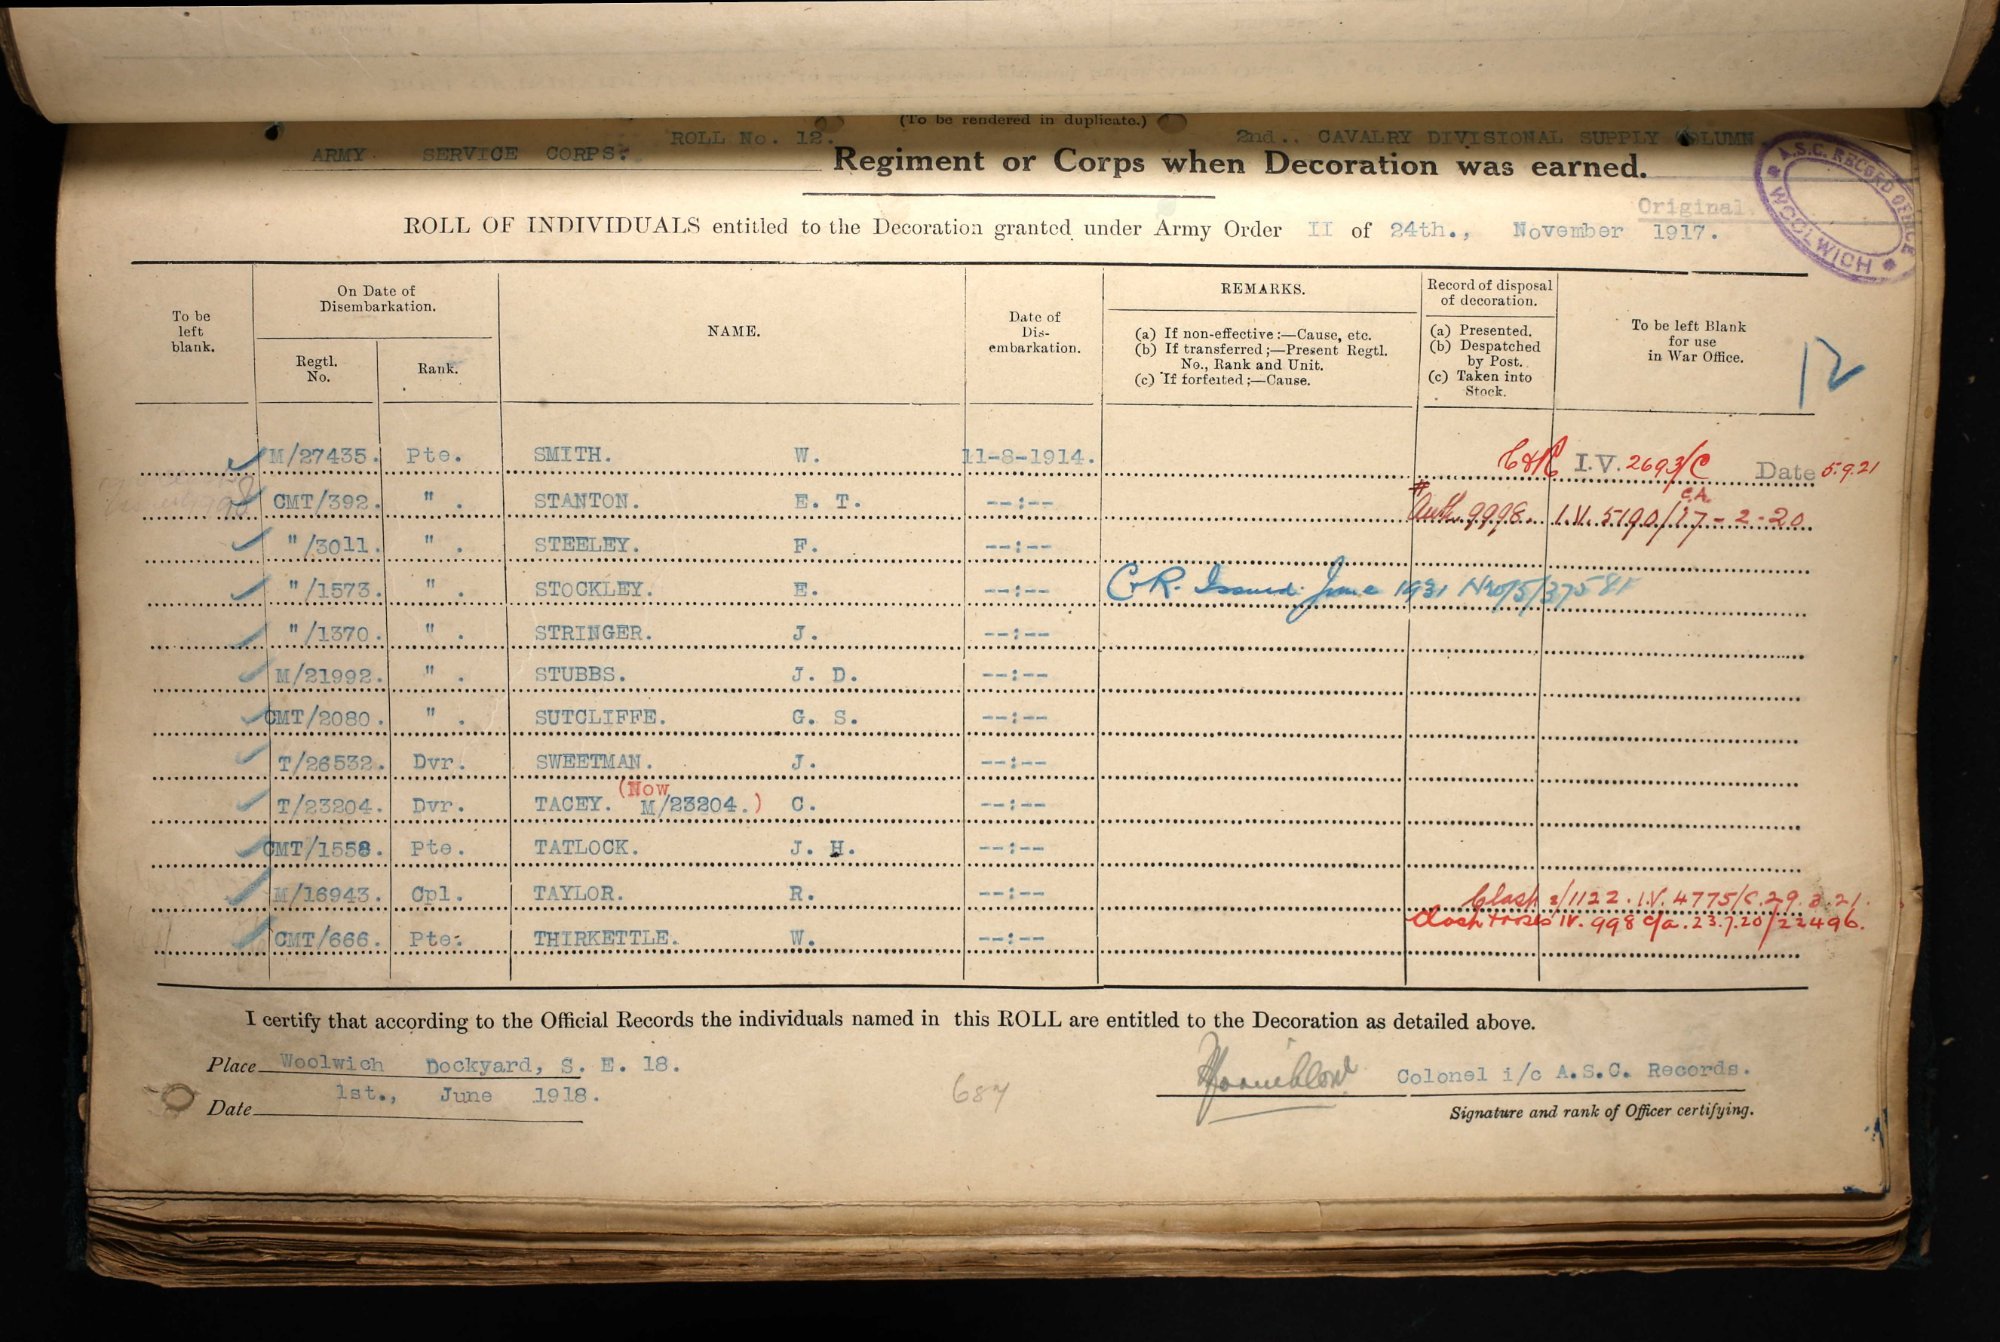 (To be rendered in duplicate.)
ROLL No. 12. 2nd.. CAVALRY DIVISIONAL SUPPLY COLUMN
ARMY SERVICE CORPS. Regiment or Corps when Decoration was earned.
A.S.C. RECORD OFFICE WOOLWICH
Original
ROLL OF INDIVIDUALS entitled to the Decoration granted under Army Order II of 24th., November 1917.
To be left blank.
On Date of Disembarkation.
Regtl. No.
Rank.
NAME.
Date of Dis-embarkation.
REMARKS.
(a) If non-effective:—Cause, etc.
(b) If transferred;—Present Regtl. No., Rank and Unit.
(c) If forfeited;—Cause.
Record of disposal of decoration.
(a) Presented.
(b) Despatched by Post.
(c) Taken into Stock.
To be left Blank for use in War Office.
12
M/27435. Pte. SMITH. W. 11-8-1914. C&R I.V. 2693/C Date 5.9.21
CMT/392. " . STANTON. E. T. --:-- Auth 9998. I.V. 5190/17-2-20
"/3011. " . STEELEY. F. --:--
"/1573. " . STOCKLEY. E. --:-- C+R. Issued June 1931
"/1370. " . STRINGER. J. --:--
M/21992. " . STUBBS. J. D. --:--
CMT/2080. " . SUTCLIFFE. G. S. --:--
T/26532. Dvr. SWEETMAN. J. --:--
T/23204. Dvr. TACEY. (Now M/23204.) C. --:--
CMT/1558. Pte. TATLOCK. J. H. --:--
M/16943. Cpl. TAYLOR. R. --:-- Clasp 2/1122. I.V. 4775/C. 29.3.21.
CMT/666. Pte. THIRKETTLE. W. --:-- Clasp + roses IV. 998 C/a. 23.7.20/22496.
I certify that according to the Official Records the individuals named in this ROLL are entitled to the Decoration as detailed above.
Place Woolwich Dockyard, S. E. 18.
Date 1st., June 1918.
687
Colonel i/c A.S.C. Records.
Signature and rank of Officer certifying.